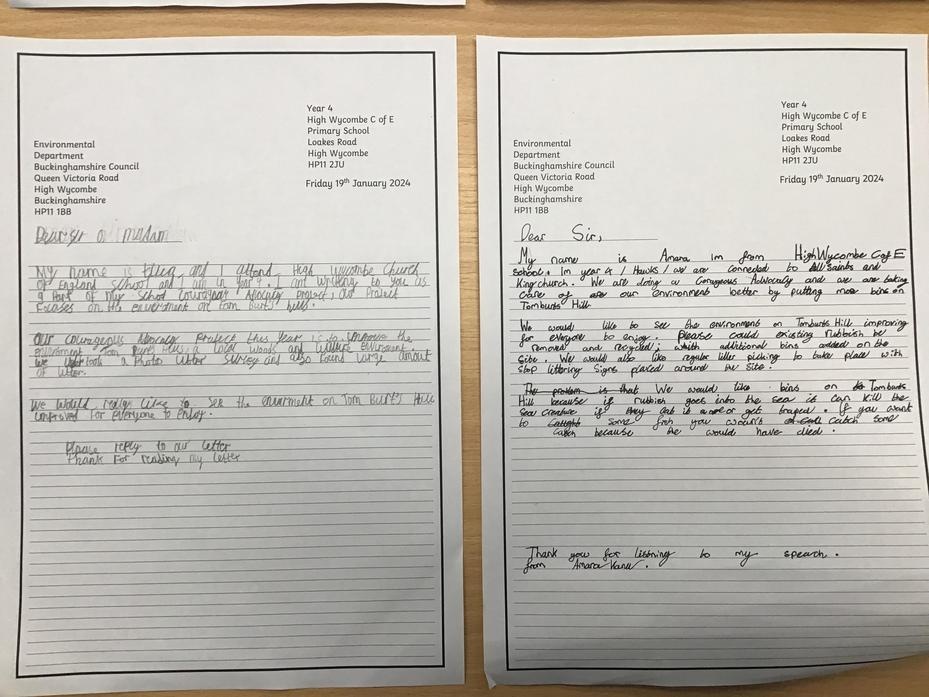 Year 4
High Wycombe C of E
Primary School
Loakes Road
High Wycombe
HP11 2JU
Friday 19th January 2024
Environmental
Department
Buckinghamshire Council
Queen Victoria Road
High Wycombe
Buckinghamshire
HP11 1BB
Dear Sir o Madam
My name is and I attend, High Wycombe Church
of England School and I am in Year 4. I am writing to you as
a Part of My School Advocacy Project, our Project
Focuses on the enviroment on Tom Burt's hill.
Our courageous Advocacy Project this Year is to improve the
enviroment. Tom Hill, a local woods and
we a Photo litter Survey and also found large amount
of litter.
We would really like to see the on Tom Burt's Hill
improved for everyone to enjoy.
Please reply to our letter
Thank For reading my letter
Year 4
High Wycombe C of E
Primary School
Loakes Road
High Wycombe
HP11 2JU
Friday 19th January 2024
Environmental
Department
Buckinghamshire Council
Queen Victoria Road
High Wycombe
Buckinghamshire
HP11 1BB
Dear Sir,
My name is Amara Im from High Wycombe C of E
School. Im year 4 / Hawks / we are conneded to All Saints and
King church. We are doing a Advocacy and we are taking
care of our environment better by putting more bins on
Tomburts Hill.
We would like to see the environment on Tomburts Hill improving
for everyone to enjoy. Please could existing rubbish be
removed and recycled; with additional bins added on the
Site. We would also like regular litter picking to take place with
Stop littering Signs placed around the Site.
The problem is that We would like bins on Tomburts
Hill because if rubbish goes into the sea it can kill the
Sea Creature if they eat it or get traped. If you want
to some fish you woun't Catch some
Catch because the would have died.
Thank you for listning to my speach.
from Amara Kanu.